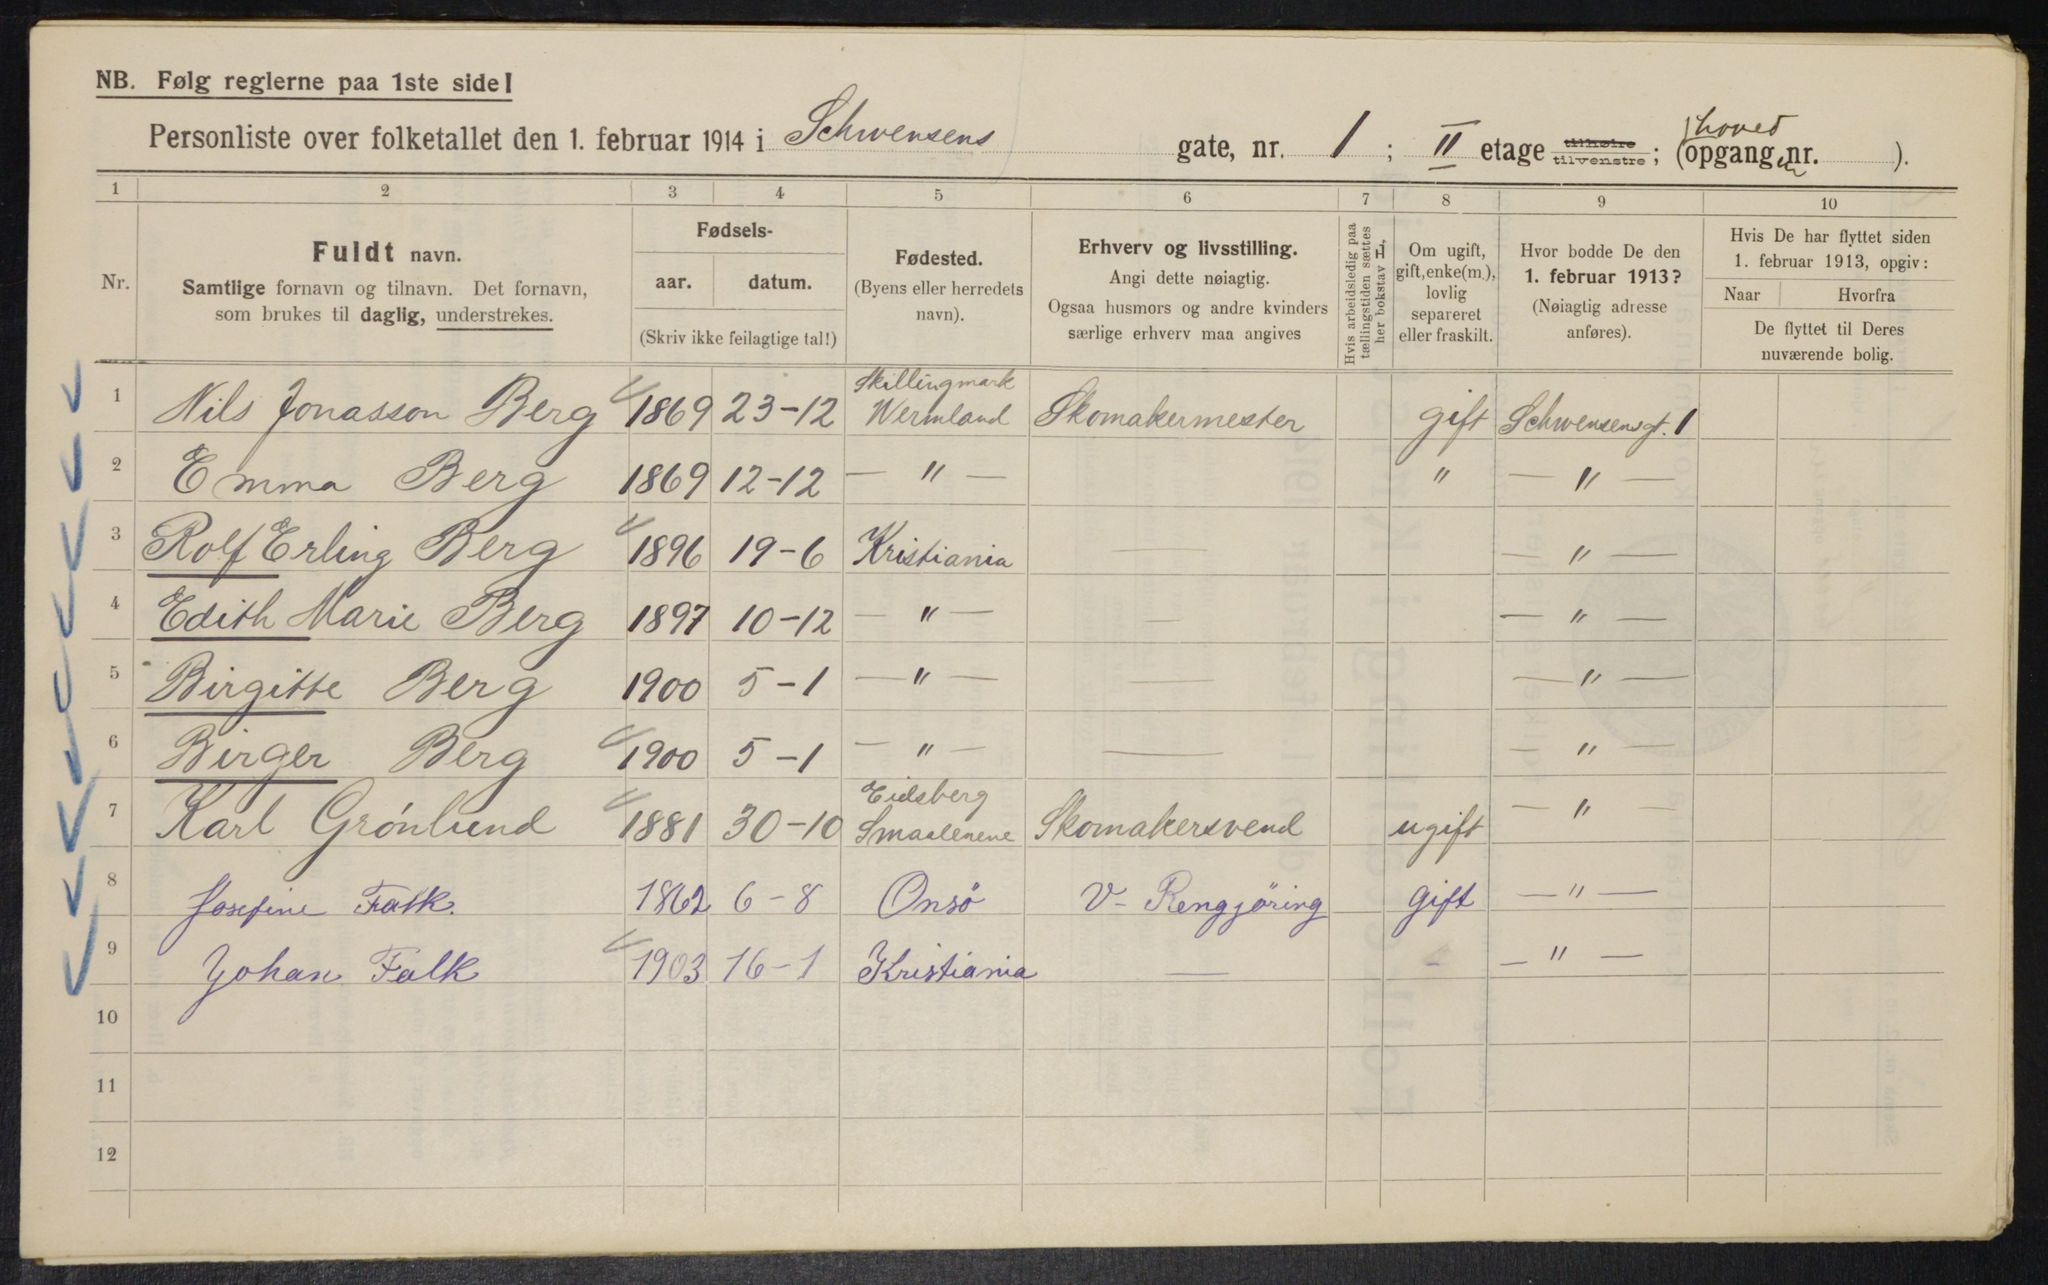 NB. Følg reglerne paa 1ste side!
Personliste over folketallet den 1. februar 1914 i Schwensens gate, nr. 1; II etage tilhøire tilvenstre; (hoved opgang nr. ).
1 2 3 4 5 6 7 8 9 10
Nr.
Fuldt navn.
Samtlige fornavn og tilnavn. Det fornavn,
som brukes til daglig, understrekes.
Fødsels-
aar. datum.
(Skriv ikke feilagtige tal!)
Fødested.
(Byens eller herredets
navn).
Erhverv og livsstilling.
Angi dette nøiagtig.
Ogsaa husmors og andre kvinders
særlige erhverv maa angives
Hvis arbeidsledig paa
tællingstiden sættes
her bokstav L.
Om ugift,
gift, enke(m.),
lovlig
separeret
eller fraskilt.
Hvor bodde De den
1. februar 1913?
(Nøiagtig adresse
anføres).
Hvis De har flyttet siden
1. februar 1913, opgiv:
Naar Hvorfra
De flyttet til Deres
nuværende bolig.
1 Nils Jonasson Berg 1869 23-12 Skillingmark Wermland Skomakermester gift Schwensensgt. 1
2 Emma Berg 1869 12-12 — " — " — " —
3 Rolf Erling Berg 1896 19-6 Kristiania — — " —
4 Edith Marie Berg 1897 10-12 — " — — — " —
5 Birgitte Berg 1900 5-1 — " — — — " —
6 Birger Berg 1900 5-1 — " — — — " —
7 Karl Grónlund 1881 30-10 Eidsberg Smaalenene Skomakersvend ugift — " —
8 Josefine Falk. 1862 6-8 Onsö V- Rengjöring gift — " —
9 Johan Falk 1903 16-1 Kristiania — - — " —
10
11
12